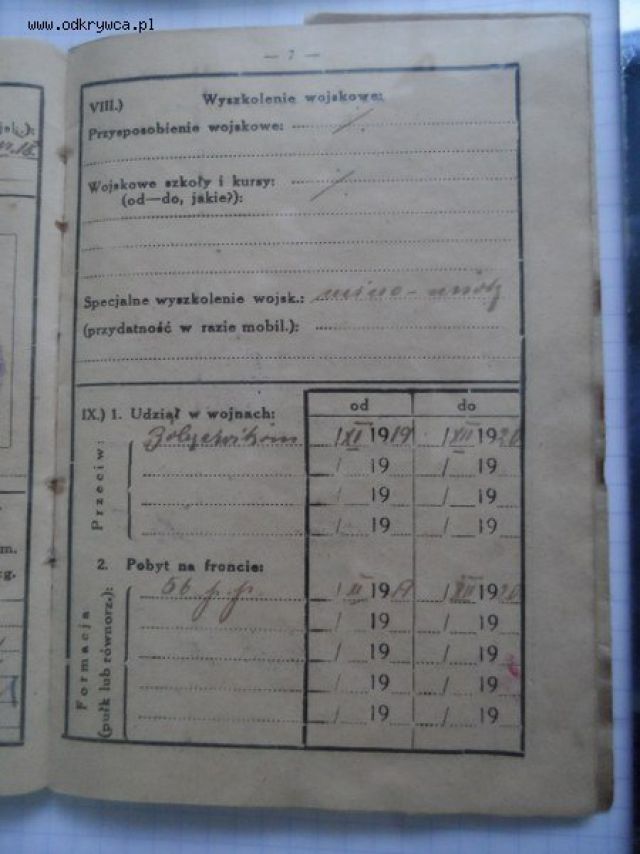 www.odkrywca.pl
— 7 —
VIII.) Wyszkolenie wojskowe:
Przysposobienie wojskowe: /
Wojskowe szkoły i kursy: /
(od—do, jakie?):
Specjalne wyszkolenie wojsk.:
(przydatność w razie mobil.):
IX.) 1. Udział w wojnach: od do
Przeciw:
/XI 1919 /XII 1920
/ 19 / 19
/ 19 / 19
/ 19 / 19
2. Pobyt na froncie:
Formacja
(pułk lub równorz.):
56 p.p. / 1919 /XII 1920
/ 19 / 19
/ 19 / 19
/ 19 / 19
/ 19 / 19
m.
cg.